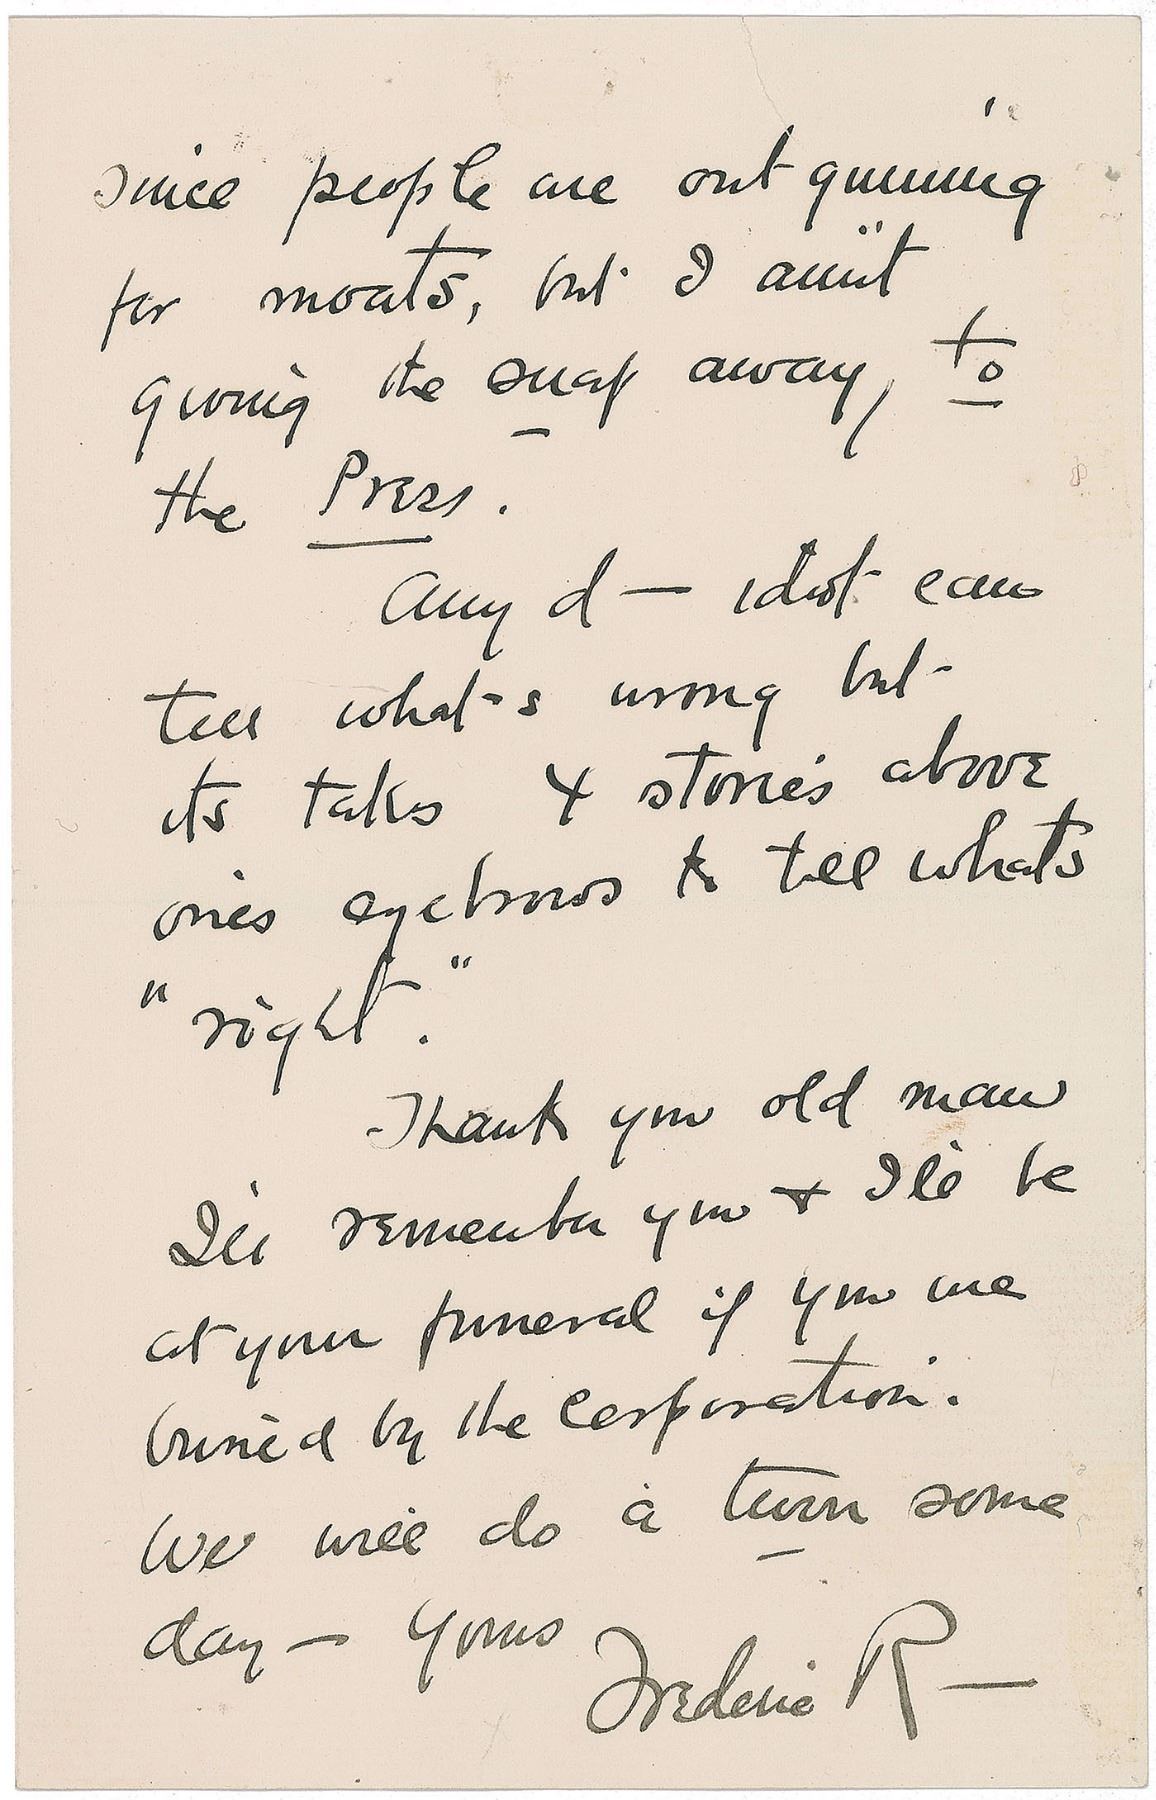 Since people are out gunning
for moats, but I ain't
giving the snap away, to
the Press.
Any d— idiot can
tell what's wrong but
its takes 4 stories above
ones eyebrows to tell whats
"right."
Thank you old man
I'll remember you & I'll be
at your funeral if you are
buried by the corporation.
We will do a turn some
day — Yours
Frederic R—